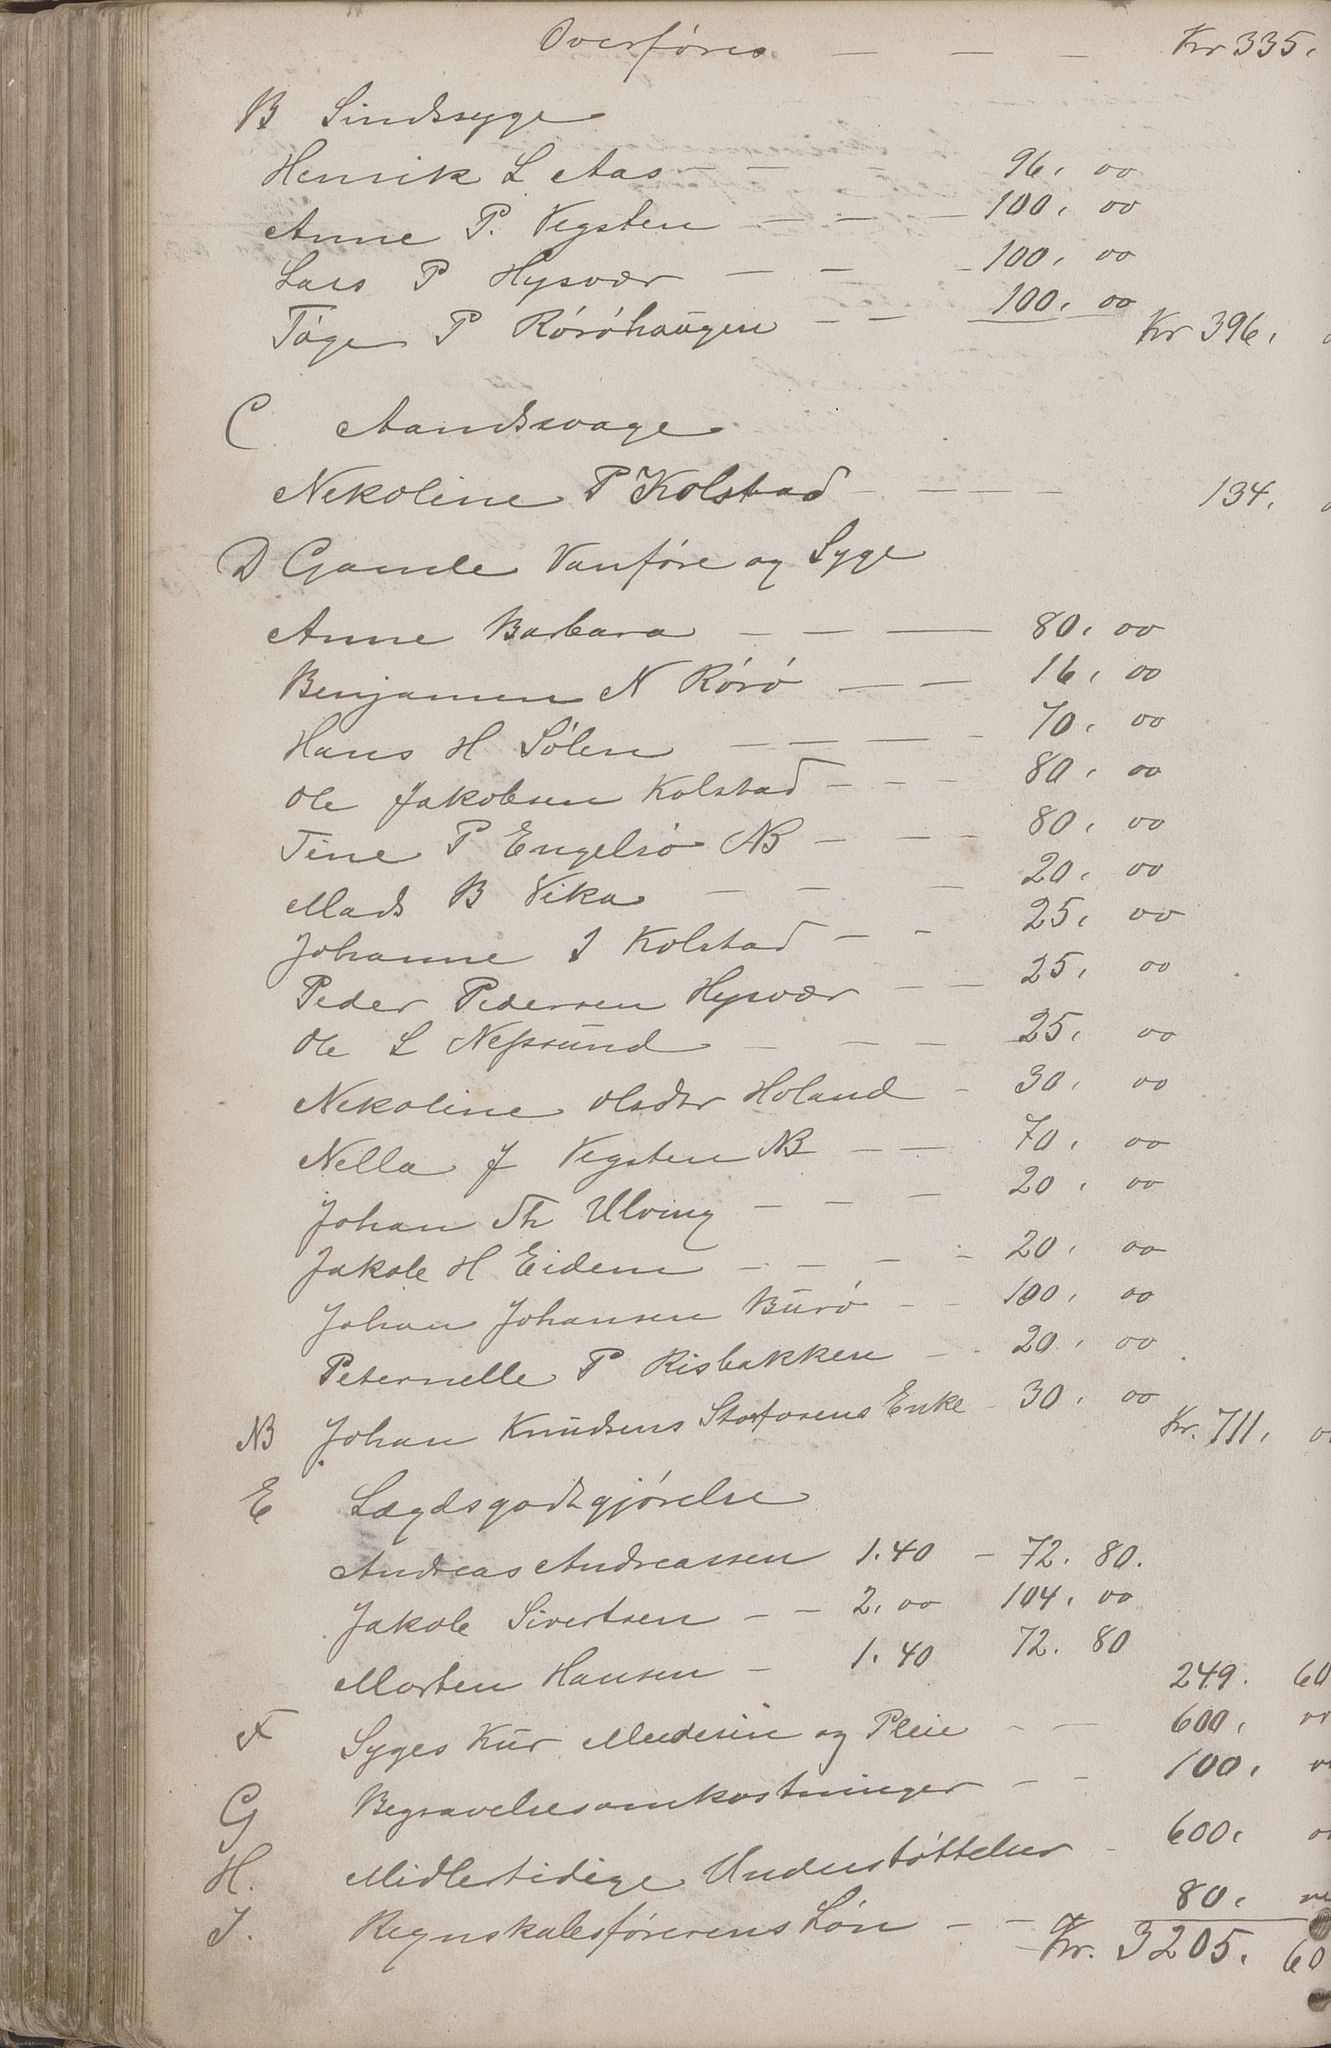 Overføres — — — Kr 335.
B Sindssyge
Henrik L Aas — — — 96. 00
Anne P. Vegsten — — — 100. 00
Lars P Hysvær — — — 100. 00
Tøger P Rørøhaugen — — 100. 00 Kr 396.
C Aandssvage
Nekoline P Kolstad — — — — 134.
D Gamle Vanføre og Syge
Anne Barbara — — — 80. 00
Benjamen N Rørø — — 16. 00
Hans H Sølen — — — — 70. 00
Ole Jakobsen Kolstad — — — 80. 00
Tine P Engelsø NB — — — 80. 00
Mads B Vika — — — 20. 00
Johanne I Kolstad — — 25. 00
Peder Pedersen Hysvær — — 25. 00
Ole L Nessund — — — 25. 00
Nekoline Olsdtr Holand — 30. 00
Nella J Vegsten NB — — 70. 00
Johan Th Ulving — — — 20. 00
Jakob H Eidem — — — — 20. 00
Johan Johansen Burø — — 100. 00
Peternelle P Risbakken — — 20. 00
NB Johan Knudsens Storforens Enke — 30. 00 Kr. 711.
E Lægdsgodtgjørelse
Andreas Andreassen 1.40 — 72. 80.
Jakob Sivertsen — — 2. 00 104. 00
Morten Hansen — 1.40 72. 80
249. 60
F Syges Kur Medesin og Pleie — — 600. 00
G Begravelsesomkostninger — — 100.
H. Midlertidige Understøttelser — 600.
I. Regnskabsførerens Løn — — 80.
Kr. 3205. 60